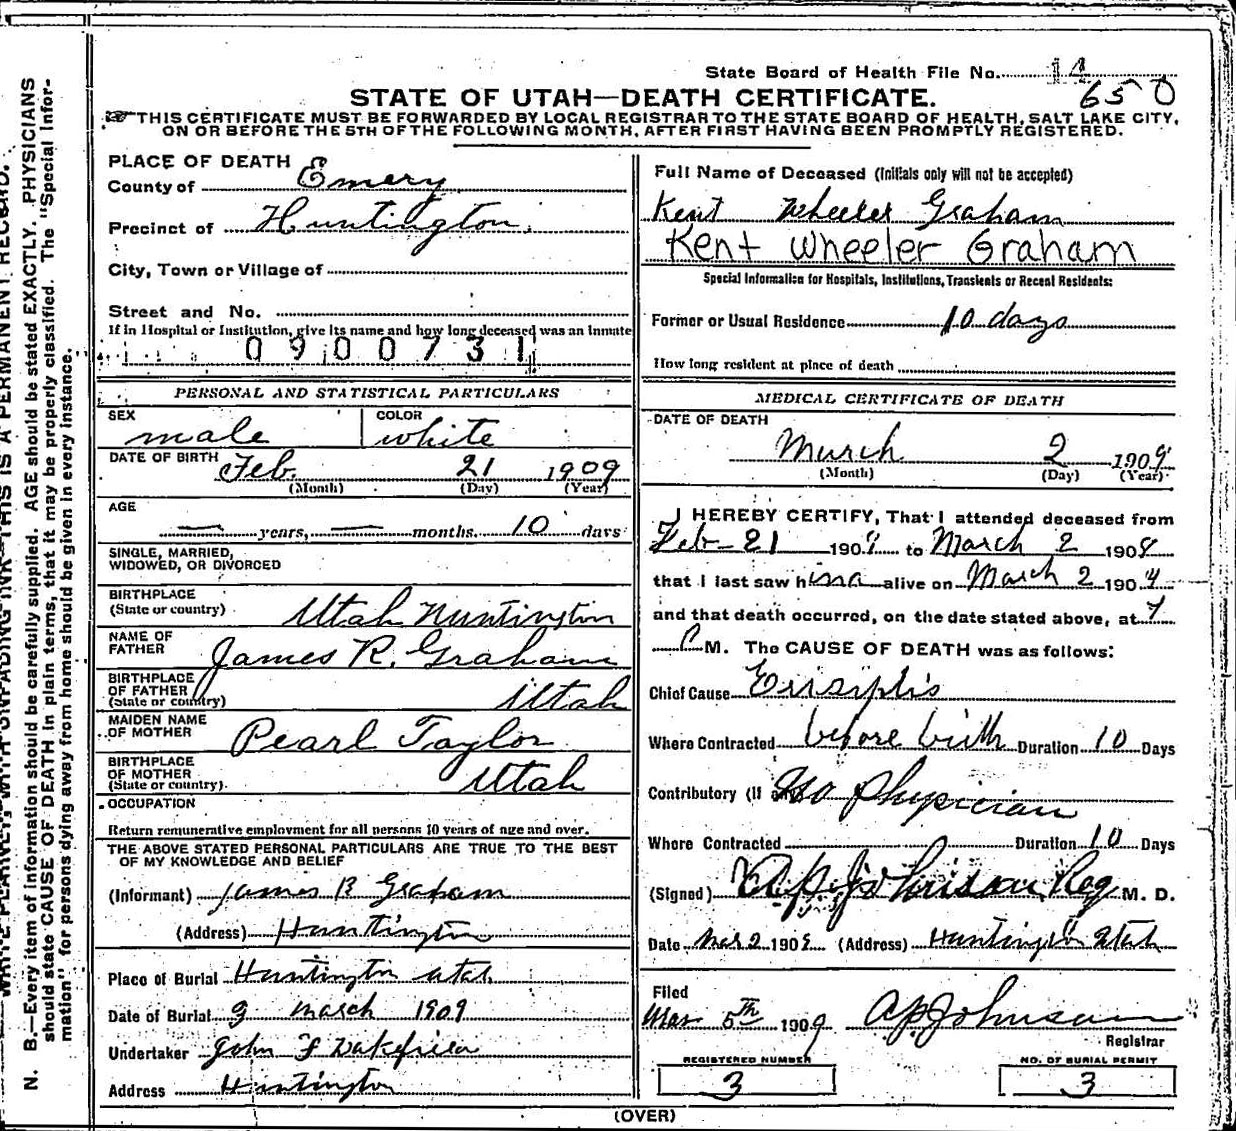 State Board of Health File No. 14
650
STATE OF UTAH—DEATH CERTIFICATE.
THIS CERTIFICATE MUST BE FORWARDED BY LOCAL REGISTRAR TO THE STATE BOARD OF HEALTH, SALT LAKE CITY,
ON OR BEFORE THE 5TH OF THE FOLLOWING MONTH, AFTER FIRST HAVING BEEN PROMPTLY REGISTERED.
PLACE OF DEATH
County of Emery
Precinct of Huntington.
City, Town or Village of
Street and No.
If in Hospital or Institution, give its name and how long deceased was an inmate
0900731
PERSONAL AND STATISTICAL PARTICULARS
SEX male COLOR white
DATE OF BIRTH Feb. 21 1909
(Month) (Day) (Year)
AGE
— years, — months. 10 days
SINGLE, MARRIED,
WIDOWED, OR DIVORCED
BIRTHPLACE
(State or country) Utah Huntington
NAME OF
FATHER James R. Graham
BIRTHPLACE
OF FATHER
(State or country) Utah
MAIDEN NAME
OF MOTHER Pearl Taylor
BIRTHPLACE
OF MOTHER
(State or country) Utah
OCCUPATION
Return remunerative employment for all persons 10 years of age and over.
THE ABOVE STATED PERSONAL PARTICULARS ARE TRUE TO THE BEST
OF MY KNOWLEDGE AND BELIEF
(Informant) James R Graham
(Address) Huntington
Place of Burial Huntington Utah
Date of Burial 3 March 1909
Undertaker John F Wakefield
Address Huntington
Full Name of Deceased (Initials only will not be accepted)
Kent Wheeler Graham
Kent Wheeler Graham
Special Information for Hospitals, Institutions, Transients or Recent Residents:
Former or Usual Residence 10 days
How long resident at place of death
MEDICAL CERTIFICATE OF DEATH
DATE OF DEATH
March 2 1909
(Month) (Day) (Year)
I HEREBY CERTIFY, That I attended deceased from
Feb 21 1909 to March 2 1909
that I last saw him alive on March 2 1909
and that death occurred, on the date stated above, at 7
P M. The CAUSE OF DEATH was as follows:
Chief Cause Erisiplis
Where Contracted before birth Duration 10 Days
Contributory (If any) No Physician
Where Contracted Duration 10 Days
(Signed) A P Johnson Reg M. D.
Date Mar 2 1909 (Address) Huntington Utah
Filed
Mar 5th 1909 A P Johnson
Registrar
REGISTERED NUMBER
3
NO. OF BURIAL PERMIT
3
(OVER)
WRITE PLAINLY, WITH UNFADING INK—THIS IS A PERMANENT RECORD.
N. B.—Every item of information should be carefully supplied. AGE should be stated EXACTLY. PHYSICIANS
should state CAUSE OF DEATH in plain terms, that it may be properly classified. The "Special Infor-
mation" for persons dying away from home should be given in every instance.